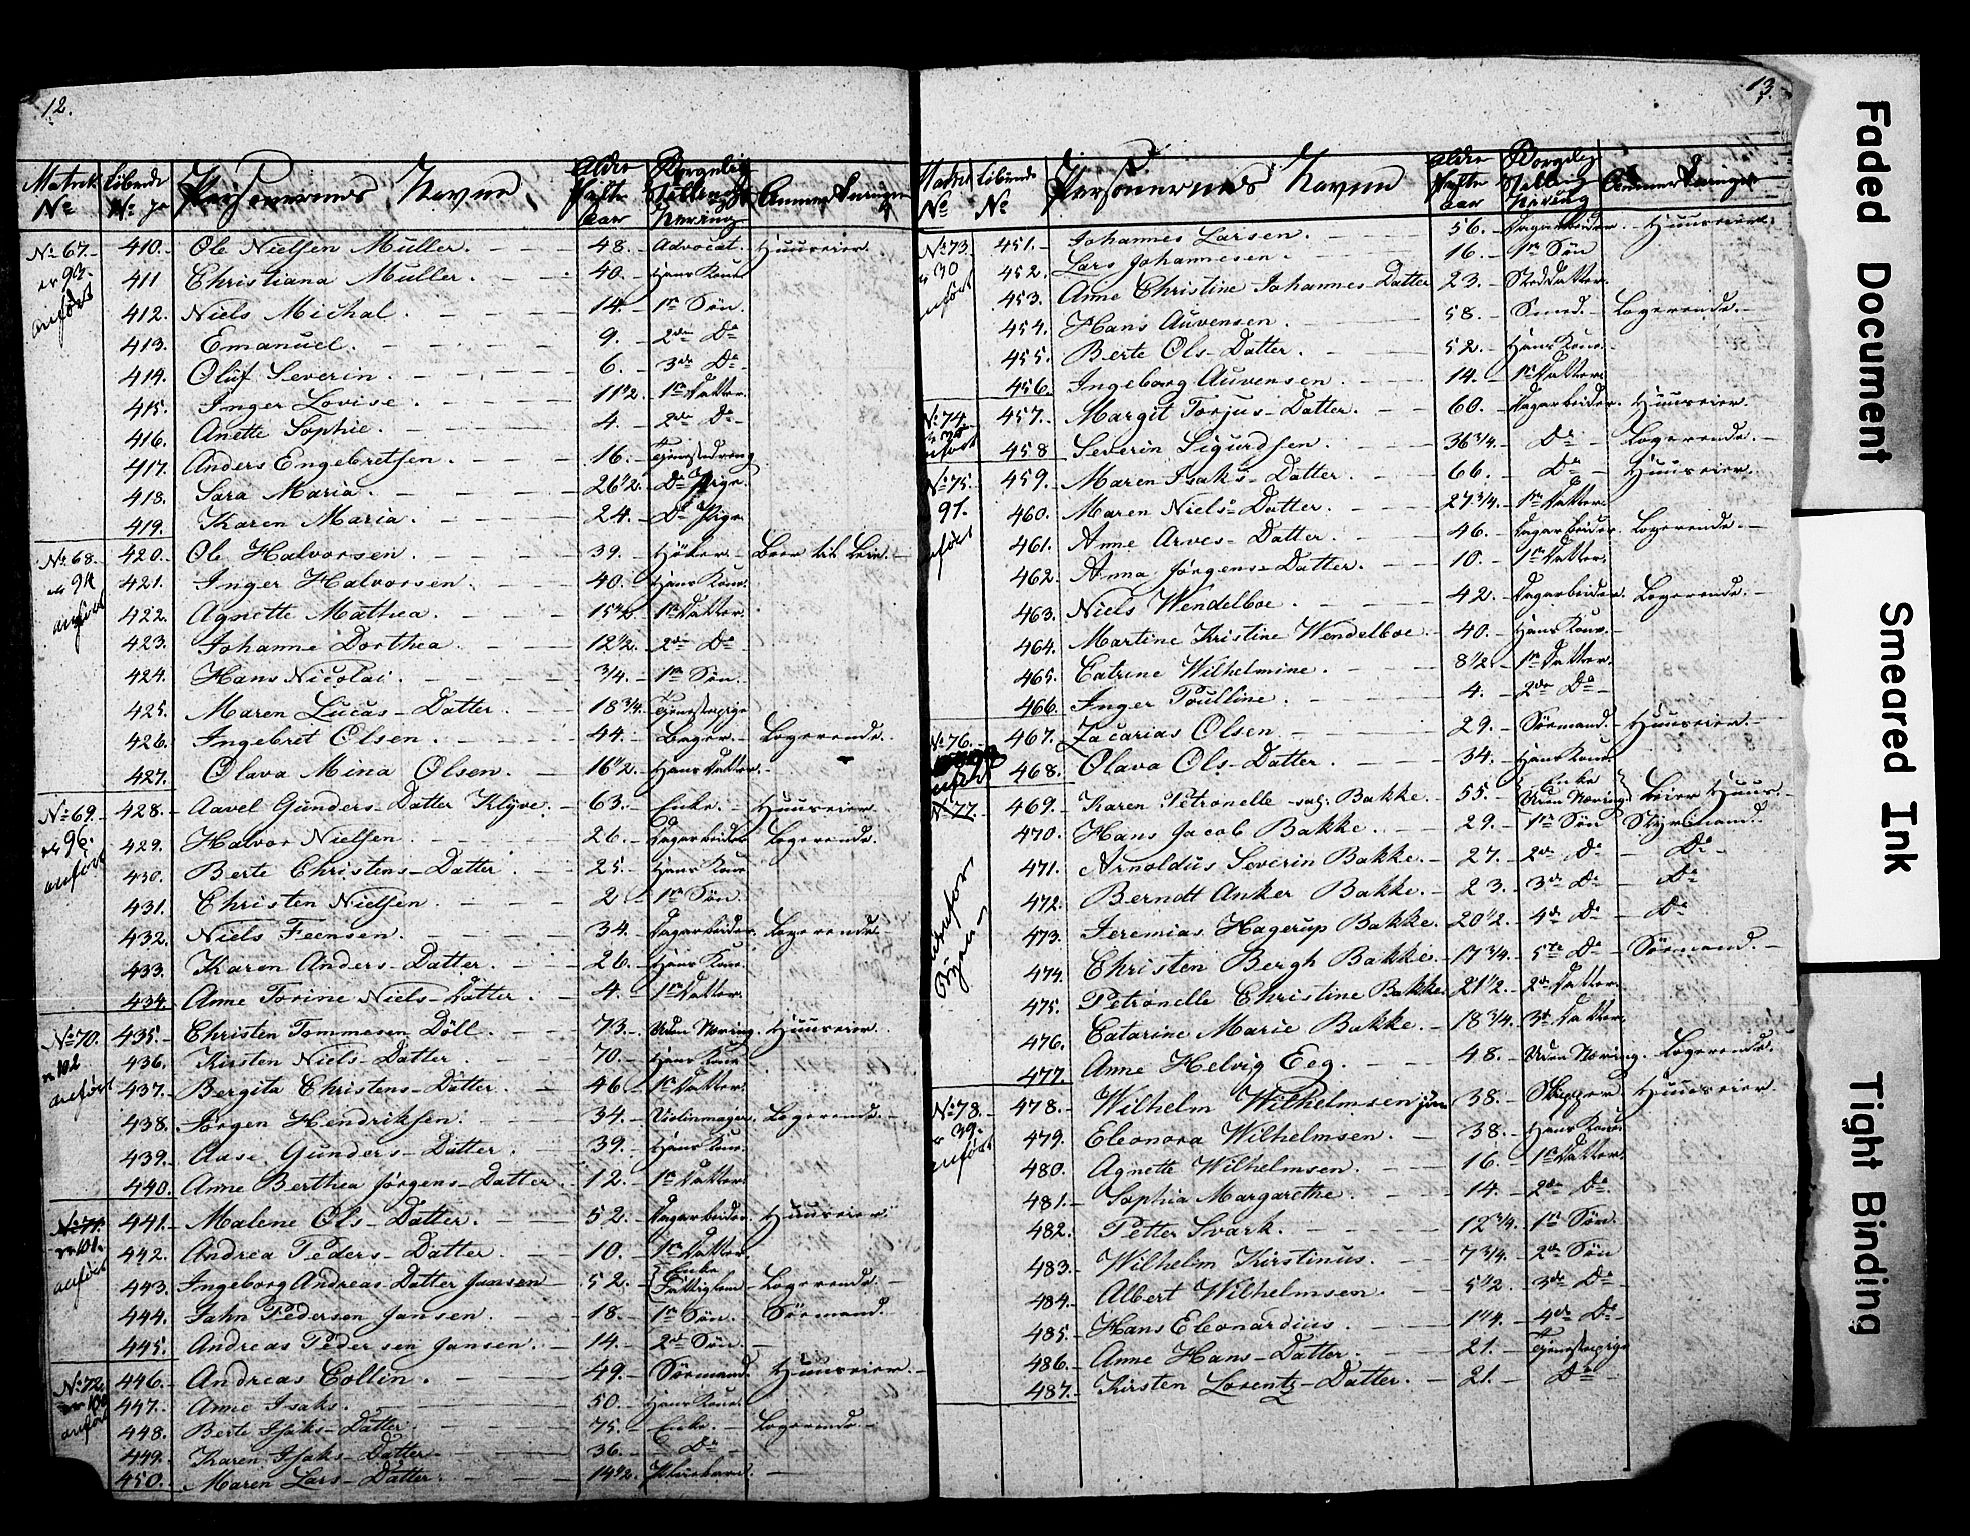 12.
Matrik Löbende Personernes Navne Alder Borgelig
No No Næste Stilling Anmærkninger
aar Næring
No 67. 410. Ole Nielsen Müller. 48. Advocat. Huuseier.
er 93. 411 Christiana Müller. 40. Hans Kone
anført 412. Niels Michal. 14. 1re Søn.
413. Emanuel. 9. 2den Do
414. Oluf Severin. 6. 3de Do
415. Inger Lovise. 11 1/2. 1re Datter.
416. Anette Sophie. 4. 2den Do
417. Anders Engebretsen. 16. Tjenestedreng
418. Sara Maria. 26 1/2. Do Pige.
419. Karen Maria. 24. Do Pige
No 68. 420. Ole Halvorsen. 39. Höker Boer til Leie
er 94 421. Inger Halvorsen. 40. Hans Kone.
anført 422. Agnette Mathea. 15 1/2 1re Datter.
423. Johanne Dorthea. 12 1/2. 2den Do
424. Hans Nicolai. 3/4. 1re Søn.
425. Maren Lucas-Datter. 18 3/4. Tjenestepige
426. Ingebret Olsen. 44. Bager. Logerende.
427. Olava Mina Olsen. 16 1/2. Hans Datter.
No 69. 428. Aavel Gunders-Datter Klyve. 63. Enke. Huuseier
er 96. 429. Halvor Nielsen. 26. Dagarbeider Logerende.
anført 430. Berte Christens-Datter. 25. Hans Kone
431. Christen Nielsen. 2 1re Søn.
432. Niels Feensen. 34. Dagarbeider. Logerende.
433. Karen Anders-Datter. 26. Hans Kone.
434. Anne Torine Niels-Datter. 4. 1re Datter.
No 70. 435. Christen Tommesen Döll. 73. Uden Næring. Huuseier.
er 102 436. Kirsten Niels-Datter. 70. Hans Kone
anført 437. Bergita Christens-Datter. 46. 1re Datter.
438. Jørgen Hendriksen. 34. Violinmager. Logerende.
439. Aase Gunders-Datter. 39. Hans Kone.
440. Anne Berthea Jørgens-Datter. 12. 1re Datter.
No 71. 441. Malene Ols-Datter. 52. Dagarbeider. Huuseier
er 101. 442. Andrea Peders-Datter. 10. 1re Datter
anført 443. Ingeborg Andreas-Datter Jansen 52. Enke Fattiglem Logerende.
444. Jahn Pedersen Jansen. 18. 1re Søn. Sømand.
445. Andreas Pedersen Jansen. 14. 2den Søn.
No 72. 446. Andreas Collin. 49. Sømand. Huuseier.
er 100 447. Anne Isaks. 50. Hans Kone.
anført 448. Berte Isaks-Datter. 75. Enke. Logerende.
449. Karen Isaks-Datter 36. Do
450. Maren Lars-Datter. 14 1/2.
13.
Matrik Löbende Personernes Navne Alder Borgelig
No No Næste Stilling Anmærkninger
aar Næring
No 73. 451. Johannes Larsen. 56. Dagarbeider. Huuseier.
30 452. Lars Johannesen. 16. 1re Søn
anført 453. Anne Christine Johannes-Datter 23. Steddatter.
454. Hans Auvensen. 58. Smed. Logerende.
455. Berte Ols-Datter. 52. Hans Kone.
456. Ingeborg Auvensen. 14. 1re Datter.
No 74. 457. Margit Torjus-Datter. 60. Dagarbeider. Huuseier.
anført 458 Severin Sigurdsen. 36 3/4. Do Logerende.
No 75. 459. Maren Isaks-Datter. 66. Do Huuseier.
97. 460. Maren Niels-Datter. 27 3/4. 1re Datter.
anført 461. Anne Arves-Datter. 46. Dagarbeider Logerende.
462. Anna Jørgens-Datter. 10. 1re Datter.
463. Niels Wendelboe. 42. Dagarbeider. Logerende.
464. Martine Kristine Wendelboe. 40. Hans Kone.
465. Catrine Wilhelmine. 8 1/2. 1re Datter.
466. Inger Poulline. 4. 2den Do
No 76. 467. Zacarias Olsen 29. Sømand. Huuseier.
468. Olava Ols-Datter. 34. Hans Kone
No 77. 469. Karen Petronelle sal. Bakke. 55. Enke Uden Næring Leier Huus.
470. Hans Jacob Bakke. 29. 1re Søn Styrmand.
471. Arnoldus Severin Bakke. 27. 2den Do Do
udenfor 472. Berndt Anker Bakke. 23. 3de Do Do
Byen 473. Jeremias Hagerup Bakke. 20 1/2. 4de Do Do
474. Christen Bergh Bakke. 17 3/4. 5te Do Sømand.
475. Petronelle Christine Bakke 21 1/2. 2den Datter.
476. Catarine Marie Bakke. 18 3/4. 3de Datter.
477. Anne Helvig Eeg. 48. Uden Næring. Logerende.
No 78. 478. Wilhelm Wilhelmsen 38. Skipper Huuseier.
39. 479. Eleonora Wilhelmsen. 38. Hans Kone
anført 480. Agnette Wilhelmsen. 16. 1re Datter.
481. Sophia Margarethe. 14. 2den Do
482. Petter Svark. 12 3/4. 1re Søn.
483. Wilhelm Kirstinus. 7 3/4. 2den Søn
484. Albert Wilhelmsen. 5 1/2. 3de Do
485. Hans Eleonardius. 1 1/4. 4de Do
486. Anne Hans-Datter. 21. Tjenestepige
487. Kirsten Lorentz-Datter. 21. Do
Faded Document
Smeared Ink
Tight Binding